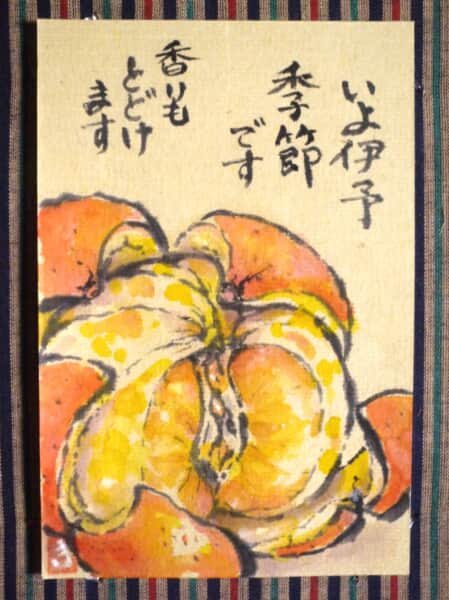 いよ伊予
季節
です
香りも
とどけ
ます